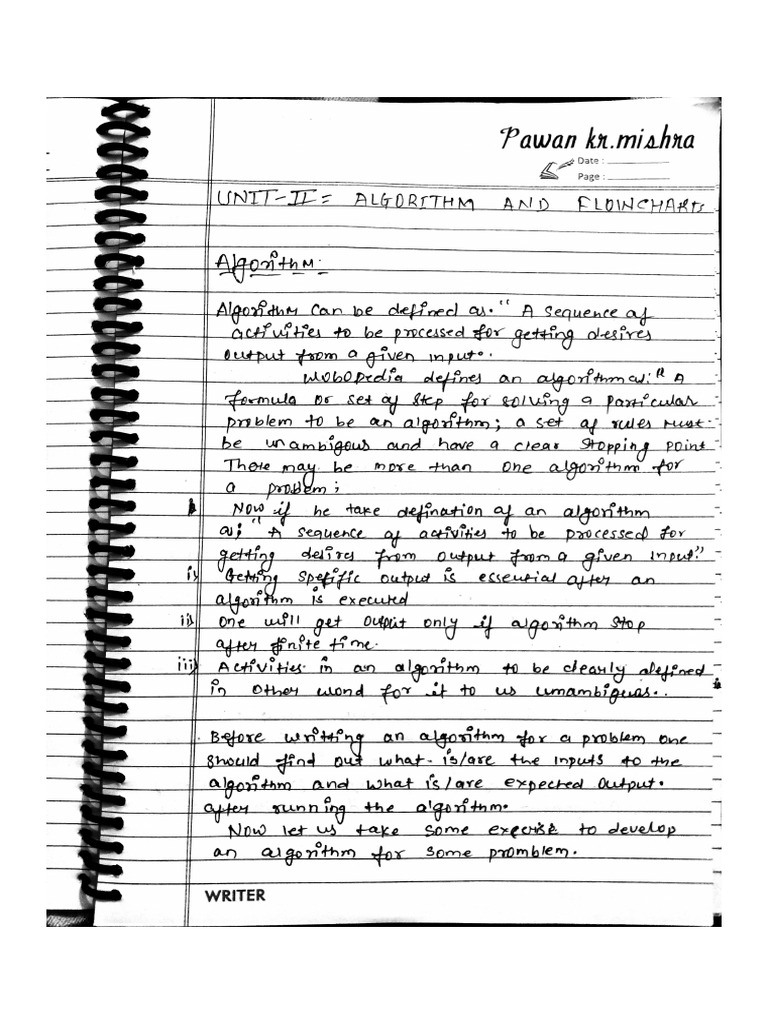 Pawan kr.mishra
Date :
Page :
UNIT-II = ALGORITHM AND FLOWCHARTS
Algorithm:
Algorithm can be defined as. " A sequence of
activities to be processed for getting desires
output from a given input".
Wobopedia defines an algorithm as: " A
formula or set of step for solving a particular
problem to be an algorithm; a set of rules must
be unambigous and have a clear stopping point
There may be more than one algorithm for
a problem;
Now if he take defination of an algorithm
as; " A sequence of activities to be processed for
getting desires from output from a given input."
i) Getting spefific output is essential after an
algorithm is executed
ii) One will get output only if algorithm stop
after finite time.
iii) Activities in an algorithm to be clearly defined
in other word for it to us unambiguas..
Before writting an algorithm for a problem one
should find out what is/are the inputs to the
algorithm and what is/are expected output.
after running the algorithm.
Now let us take some to develop
an algorithm for some promblem.
WRITER